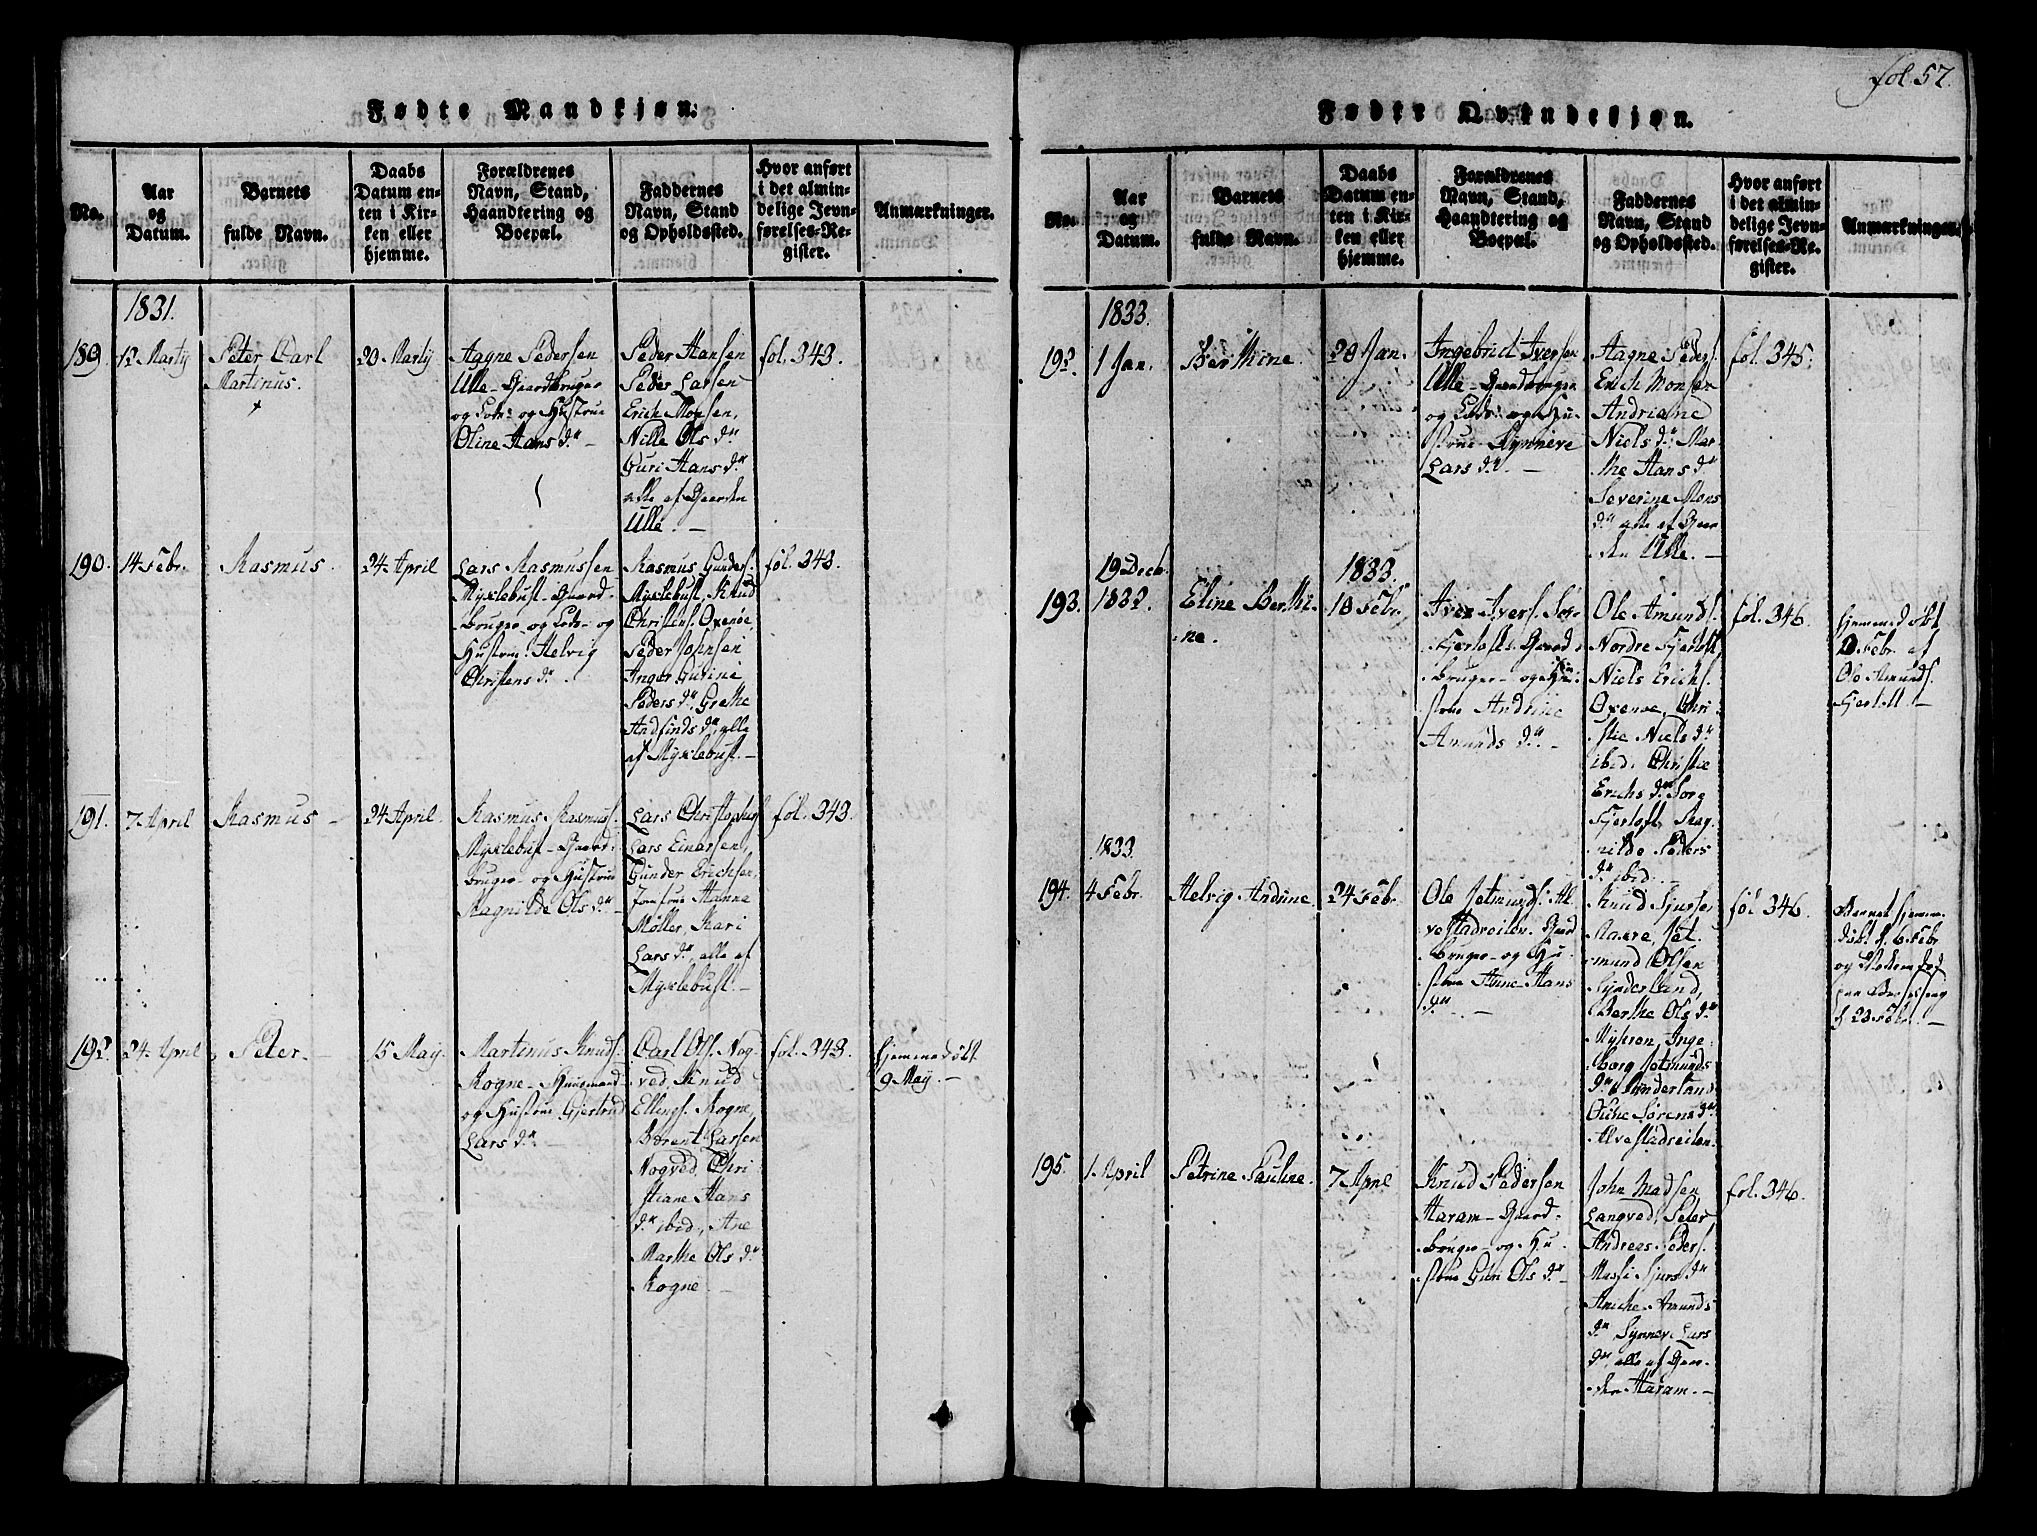 fol. 57.
Fødte Mandkjøn.
No.
Aar
og
Datum.
Barnets
fulde Navn.
Daabs
Datum en-
ten i Kir-
ken eller
hjemme.
Forældrenes
Navn, Stand,
Haandtering og
Boepæl.
Faddernes
Navn, Stand
og Opholdssted.
Hvor anført
i det almin-
delige Jevn-
førelses-Re-
gister.
Anmærkninger.
1831.
189.
12 Martij
Peter Carl
Martinus.
20 Martij
Aagne Pedersen
Ulle - Gaardbruger
og Lods- og Hustrue
Oline Hans d.r -
Peder Hansen
Peder Larsen
Erich Monsen,
Nille Ols d.r
Guri Hans d.r
alle af Gaarden
Ulle. -
fol. 343.
190.
14 Febr.
Rasmus.
24 April
Lars Rasmussen
Myklebust - Gaard-
bruger og Lods- og
Hustrue Helvig
Christens d.r
Rasmus Gunders.
Myklebust, Knud
Christens. Oxenøe
Peder Johnsen
Inger Gurine
Peders d.r, Grethe
Andfinds d.r, alle
af Myklebust. -
fol. 343.
191.
7 April
Rasmus -
24 April.
Rasmus Rasmuss.
Myklebust - Gaard-
bruger - og Hustrue
Ragnilde Ols d.r -
Lars Christophers.
Lars Einarsen,
Gunder Erichsen,
Jomfrue Hanne
Møller, Kari
Lars d.r, alle af
Myklebust -
fol. 343.
192.
24 April
Peter -
15 May.
Martinus Knuds.
Rogne - Huusmand
og Hustrue Gjertrud
Lars d.r -
Carl Ols. Nog-
ved, Knud
Ellings. Rogne,
Berent Larsen
Nogved, Chri-
stiane Hans
d.r ibid., Ane
Marthe Ols d.r
Rogne -
fol. 343.
hjemmedøbt
9 May. -
Fødte Qvindekjøn.
No.
Aar
og
Datum.
Barnets
fulde Navn.
Daabs
Datum en-
ten i Kir-
ken eller
hjemme.
Forældrenes
Navn, Stand,
Haandtering og
Boepæl.
Faddernes
Navn, Stand
og Opholdssted.
Hvor anført
i det almin-
delige Jevn-
førelses-Re-
gister.
Anmærkninger.
1833.
192.
1 Jan.
Berthine
28 Jan.
Ingebrid Iversen
Ulle - Gaardbruger
og Lods- og Hu-
strue Synneve
Lars d.r -
Aagne Peders.
Erich Monsen
Andriane
Niels d.r Mar-
the Hans d.r
Severine Mons
d.r alle af Gaar-
den Ulle. -
fol. 345.
19 Decb.
193.
1832.
Eline Berthi-
ne.
1833.
18 Febr.
Iver Ivers. Sør-
Fjertoft - Gaard-
bruger - og Hu-
strue Andrine
Amunds d.r -
Ole Amunds.
Nordre Fjertoft,
Niels Erichs.
Oxenøe, Chri-
stie Niels d.r
ibid. Christie
Erichs d.r Søre
Fjertoft, Rag-
nilde Peders
d.r ibid. -
fol. 346.
hjemmedøbt
2 Febr. af
Ole Amunds.
Fjertoft -
1833.
194.
4 Febr.
Helvig Andrine
24 Febr.
Ole Jetmunds. Al-
vestadreiten. Gaard-
bruger - og Hu-
strue Anne Hans
d.r -
Knud Sjursen
Aakre, Jet-
mund Olsen
Synderland,
Berthe Ols d.r
Inge-
borg Jetmunds
d.r Synderland
Oline Sørens d.r
Alvestadreiten.
fol. 346.
Barnet hjemme-
døbt d. 6 Febr.
og Moderen død
paa Barselseng
d. 20 Febr. -
195.
1 April
Petrine Pauline.
7 April
Knud Pedersen
Haram - Gaard-
bruger - og Hu-
strue Guri Ols d.r -
John Madsen
Langved, Peter
Andreas Peders.
Massi Sjurs d.r
Anche Amunds
d.r Synnev Lars
d.r, alle af Gaar-
den Haram. -
fol. 346.